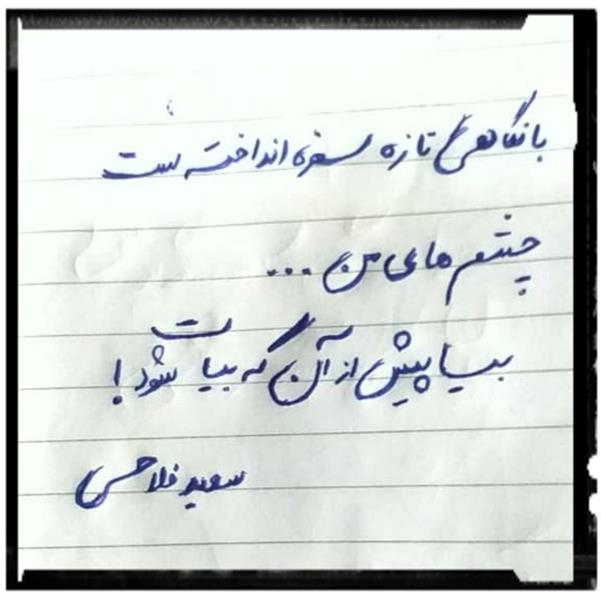 با نگاهی تازه سفره انداخته ست
چشم های من ...
بیا پیش از آن که بیات شود!
سعید فلاحی